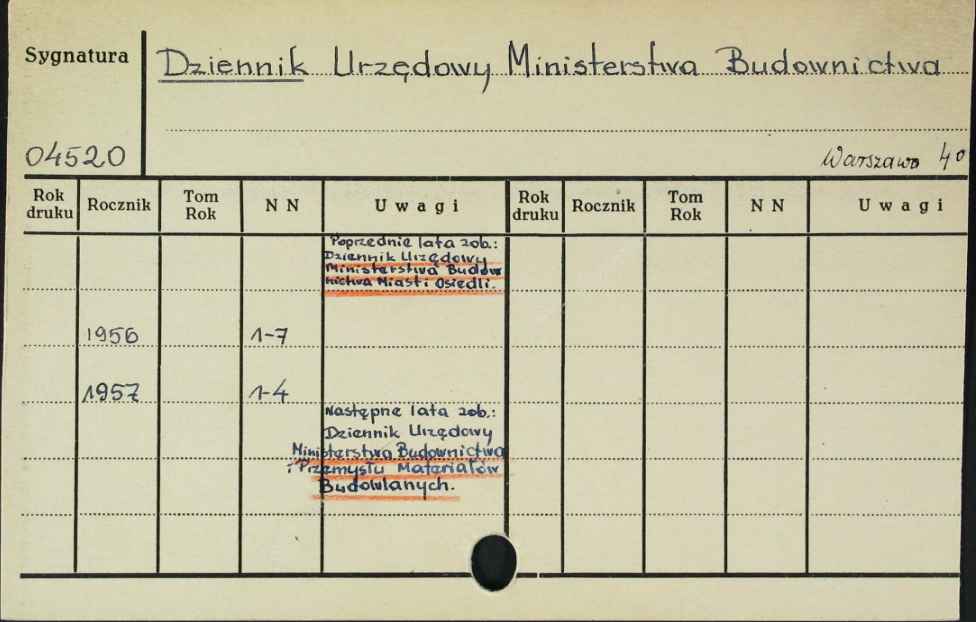 Sygnatura
Dziennik Urzędowy Ministerstwa Budownictwa
04520
Warszawa 40
Rok druku Rocznik Tom Rok N N Uwagi Rok druku Rocznik Tom Rok N N Uwagi
Poprzednie lata zob.:
Dziennik Urzędowy
Ministerstwa Budow
nictwa Miast i Osiedli.
1956 1-7
1957 1-4
Następne lata zob.:
Dziennik Urzędowy
Ministerstwa Budownictwa
i Przemysłu Materiałów
Budowlanych.